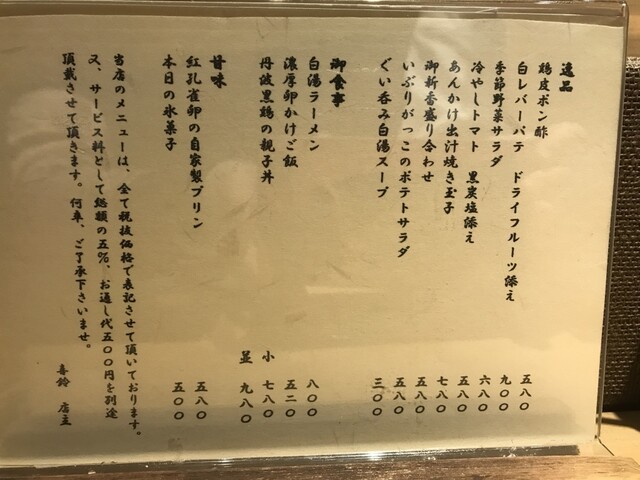 逸品
鶏皮ポン酢 五八〇
白レバーパテ ドライフルーツ添え 九〇〇
季節野菜サラダ 六八〇
冷やしトマト 黒炭塩添え 五八〇
あんかけ出汁焼き玉子 七八〇
御新香盛り合わせ 五八〇
いぶりがっこのポテトサラダ 五八〇
ぐい呑み白湯スープ 三〇〇
御食事
白湯ラーメン 八〇〇
濃厚卵かけご飯 五二〇
丹波黒鶏の親子丼 小 七八〇
並 九八〇
甘味
紅孔雀卵の自家製プリン 五八〇
本日の氷菓子 五〇〇
当店のメニューは、全て税抜価格で表記させて頂いております。
又、サービス料として総額の五%、お通し代五〇〇円を別途
頂戴させて頂きます。何卒、ご了承下さいませ。
喜鈴 店主